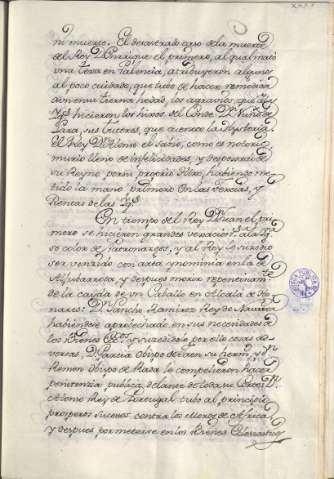 ni muerto. El desastrado caso de la muerte
del Rey D. Enrique el primero, al qual mató
una texa en Palencia, atribuyeron algunos
al poco cuidado, que tubo de hacer remediar
con tierna hedad, los agravios, que
hicieron los hixos del Conde D. Nuño de
Lara, sus tutores, que cuenta la Hystoria.
El Rey D. Alonso el Sabio, como es notorio
murió lleno de infelicidades, y desposeido de
su Reyno por su propio Hixo, habiendo me-
tido la mano primero en las tercias, y
Rentas de las Ygs.
En tiempo del Rey D. Juan el pri-
mero se hicieron grandes a la Yg.
so color de Patronazgos, y al Rey
ser vencido con arta ygnominia en la de
Aljubarrota, y despues morir repentinam.te
de la cayda de un Caballo en Alcalá de He-
nares: D. Sancho Ramirez Rey de
habiendose aprobechado en sus necesidades de
los Vienes y por ello cosas ad-
versas, D. Garcia Obispo de Jaca su herm.o y D.
Ramon Obispo de Roda lo compelieron hacer
penitencia publica, delante de todo su
Alonso Rey de Portugal tubo al principio
prosperos sucesos contra los Moros de Africa
y despues por meterse en los Vienes Eclesiasticos